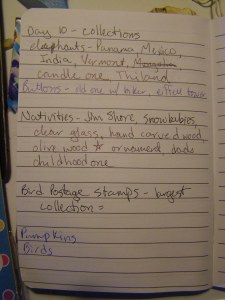 Day 10 - collections
elephants - Panama, Mexico,
India, Vermont,
candle one Thiland
Buttons - old one w/ biker, eiffel tower
Nativities - Jim Shore, Snowbabies,
clear glass, hand carved wood,
olive wood ornament, dads
childhood one
Bird Postage Stamps - largest
collection =
Pumpkins
Birds